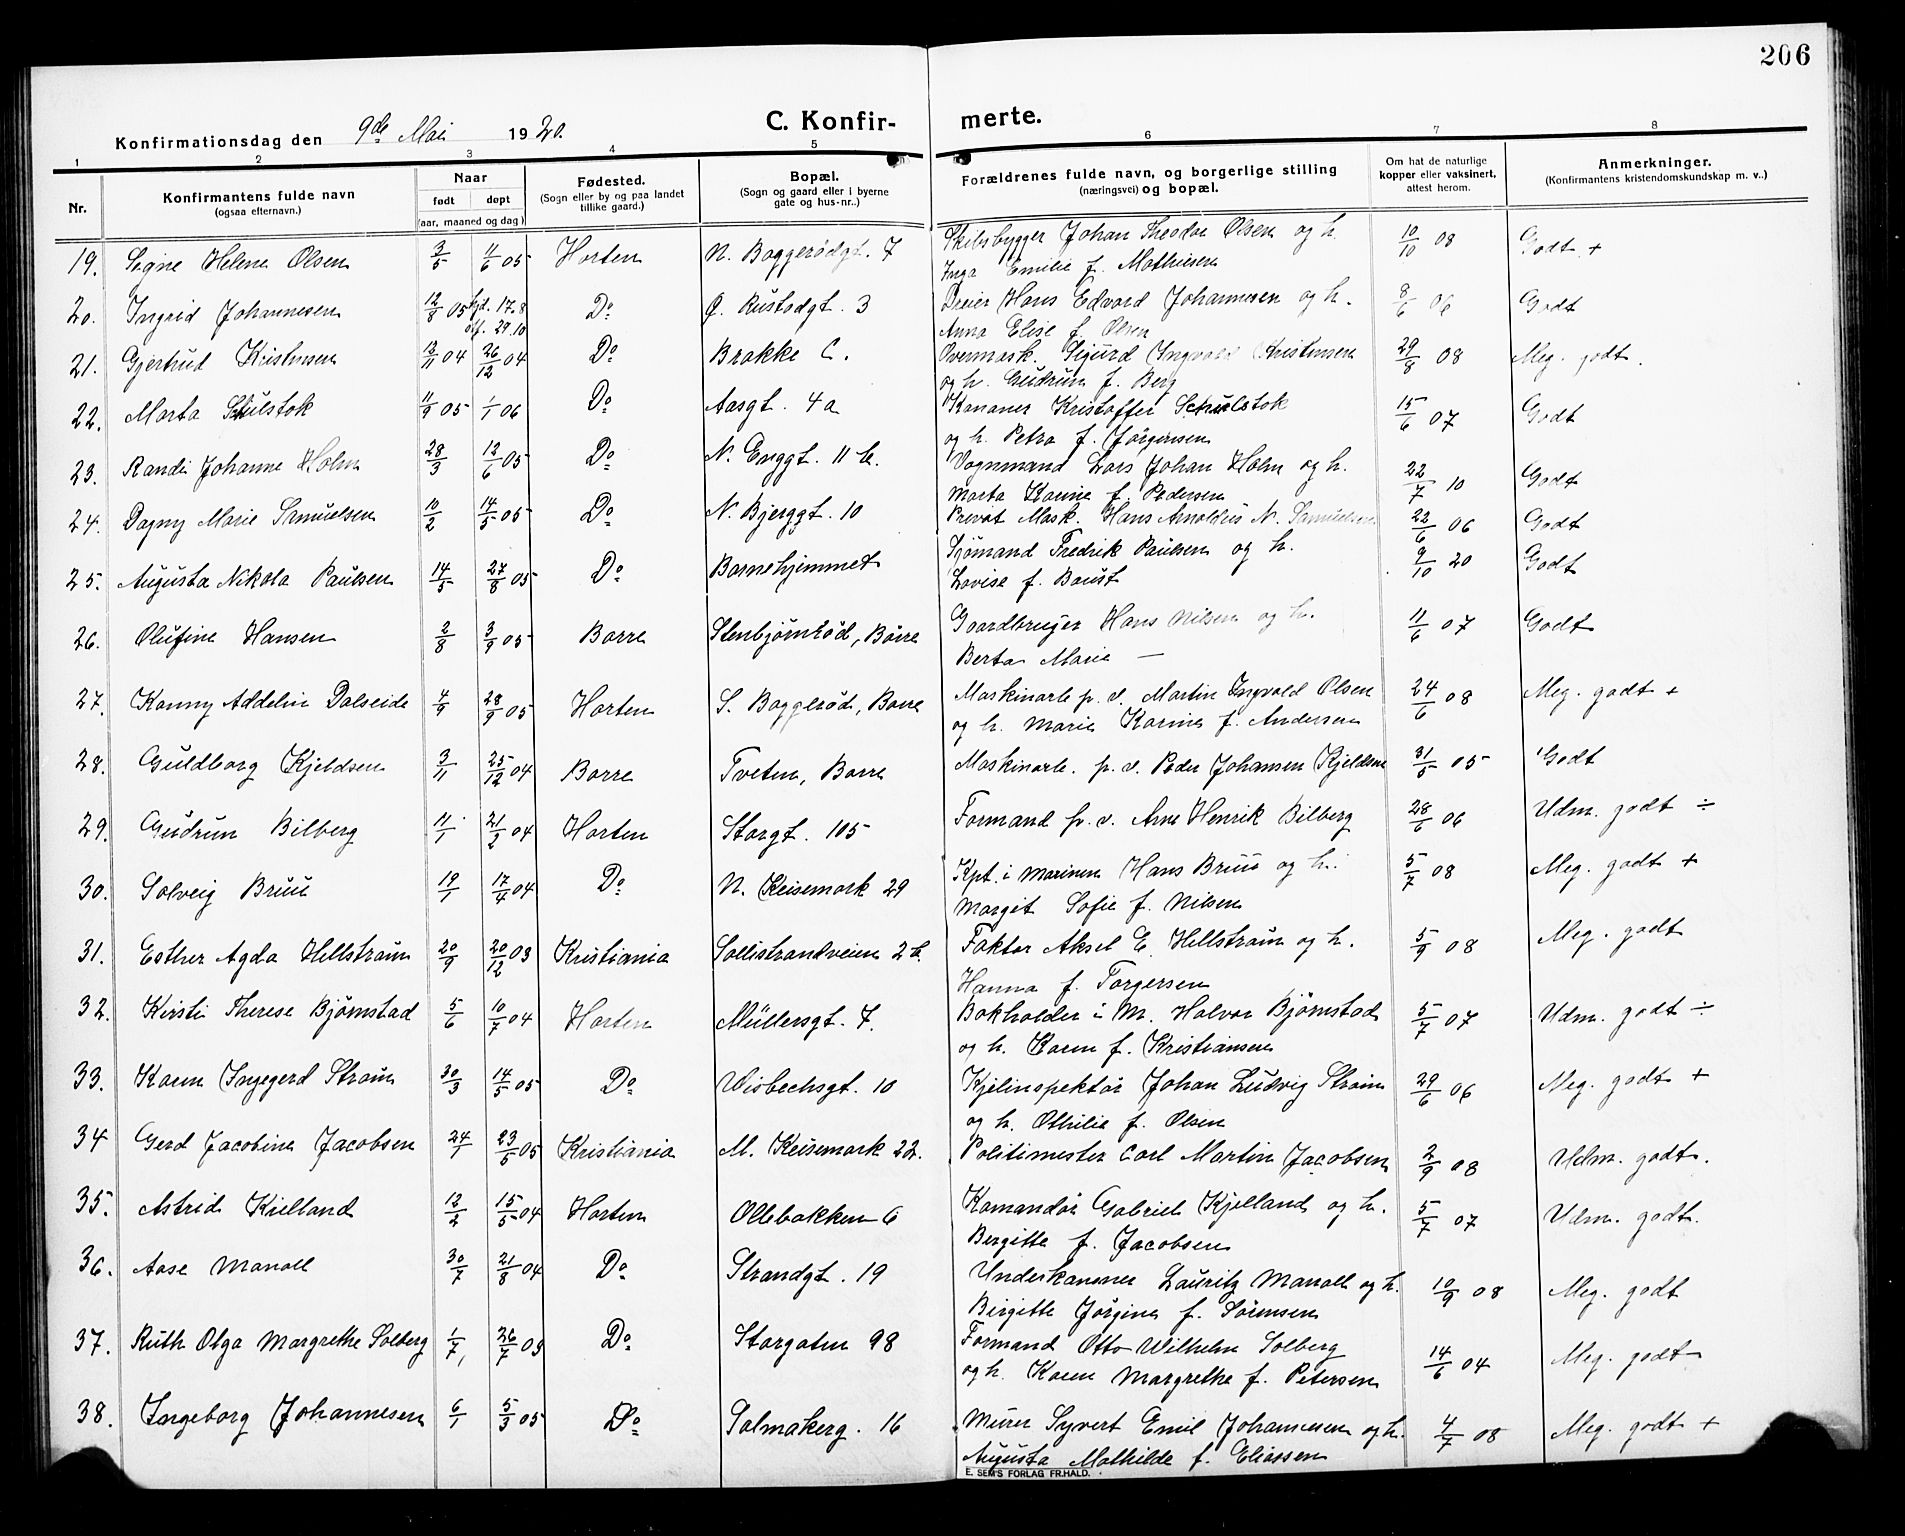 206
Konfirmationsdag den 9de Mai 1920.
C. Konfir-
merte.
1 2 3 4 5 6 7 8
Nr.
Konfirmantens fulde navn
(ogsaa efternavn.)
Naar
født døpt
(aar, maaned og dag)
Fødested.
(Sogn eller by og paa landet
tillike gaard.)
Bopæl.
(Sogn og gaard eller i byerne
gate og hus-nr..)
Forældrenes fulde navn, og borgerlige stilling
(næringsvei) og bopæl.
Om hat de naturlige
kopper eller vaksinert,
attest herom.
Anmerkninger.
(Konfirmantens kristendomskundskap m. v..)
19. Signe Helene Olsen 3/5 11/6 05 Horten N. Baggerødgt. 7 Skibsbygger Johan Theodor Olsen og h. 10/10 08 Godt +
Inga Emilie f. Mathiesen
20. Ingrid Johannesen 12/8 05 hjd. 17.8 Do Ø. Rustadgt. 3 Dreier Hans Edvard Johannesen og h. 8/6 06 Godt
stf. 29.10 Anna Elise f. Olsen
21. Gjertrud Kristensen 12/11 04 26/12 04 Do Brakke C. Overmask. Sigurd Ingvald Kristensen 29/8 08 Meg. godt.
og h. Gudrun f. Berg
22. Marta Schulstok 11/9 05 1/1 06 Do Aasgt. 4a Kananer Kristoffer Schulstok 15/6 07 Godt
og h. Petra f. Jørgensen
23. Randi Johanne Holm 28/3 12/6 05 Do N. Enggt. 11 b. Vognmand Lars Johan Holm og h. 22/7 10 Godt
Marta Karine f. Pedersen
24. Dagny Marie Samuelsen 10/2 14/5 05 Do N. Bjerggt. 10 Privat Mask. Hans Arnoldus N. Samuelsen 22/6 06 Godt
25. Augusta Nikola Paulsen 14/5 27/8 05 Do Barnehjemmet Sjømand Fredrik Paulsen og h. 9/10 20 Godt
Lovise f. Baust
26. Olufine Hansen 2/8 3/9 05 Borre Stenbjørnrød, Børre Gaardbruger Hans Nilsen og h. 11/6 07 Godt
Berta Marie —
27. Kanny Addelin Dalseide 4/9 28/9 05 Horten S. Baggerød, Borre Maskinarb. p. v. Martin Ingvald Olsen 24/6 08 Meg. godt +
og h. Marie Karine f. Andersen
28. Guldborg Kjeldsen 3/11 25/12 04 Borre Tveten, Borre Maskinarb. p. v. Peder Johansen Kjeldsen 31/5 05 Godt
29. Gudrun Bilberg 11/1 21/2 04 Horten Storgt. 105 Formand p. v. Arne Henrik Bilberg 28/6 06 Udm. godt ÷
30. Solveig Bruu 19/1 17/4 04 Do N. Keisemark 29 Kpt. i marinen Hans Bruu og h. 5/7 08 Meg. godt +
Margit Sofie f. Nilsen
31. Esther Agda Hellstrøm 20/9 20/12 03 Kristiania Sollistrandveien 2 b. Faktor Aksel E. Hellstrøm og h. 5/9 08 Meg. godt
Hanna f. Torgersen
32. Kirsti Therese Bjørnstad 5/6 10/7 04 Horten Müllersgt. 7. Bokholder i M. Halvor Bjørnstad 5/7 07 Udm. godt ÷
og h. Karen f. Kristiansen
33. Karen Ingegerd Strøm 30/3 14/5 05 Do Wisbechsgt. 10 Kjelinspektør Johan Ludvig Strøm 29/6 06 Meg. godt +
og h. Othilie f. Olsen
34 Gerd Jacobine Jacobsen 24/1 23/5 05 Kristiania M. Keisemark 22. Politimester Carl Martin Jacobsen 2/9 08 Udm. godt.
35. Astrid Kielland 12/2 15/5 04 Horten Ollebakken 6 Komandør Gabriel Kjelland og h. 5/7 07 Udm. godt.
Bergitte f. Jacobsen
36. Aase Manoll 30/7 21/8 04 Do Strandgt. 19 Underkanoner Lauritz Manoll og h. 10/9 08 Meg. godt
Birgitte Jørgine f. Sørensen
37. Ruth Olga Margrethe Solberg 1/7, 26/7 03 Do Storgaten 98 Formand Otto Wilhelm Solberg 14/6 04 Meg. godt
og h. Karen Margrethe f. Petersen
38. Ingeborg Johannesen 6/1 5/3 05 Do Salmakerg. 16 Murer Syvert Emil Johannesen og h. 4/7 08 Meg. godt +
Augusta Mathilde f. Eliassen
E. SEM'S FORLAG FR.HALD.